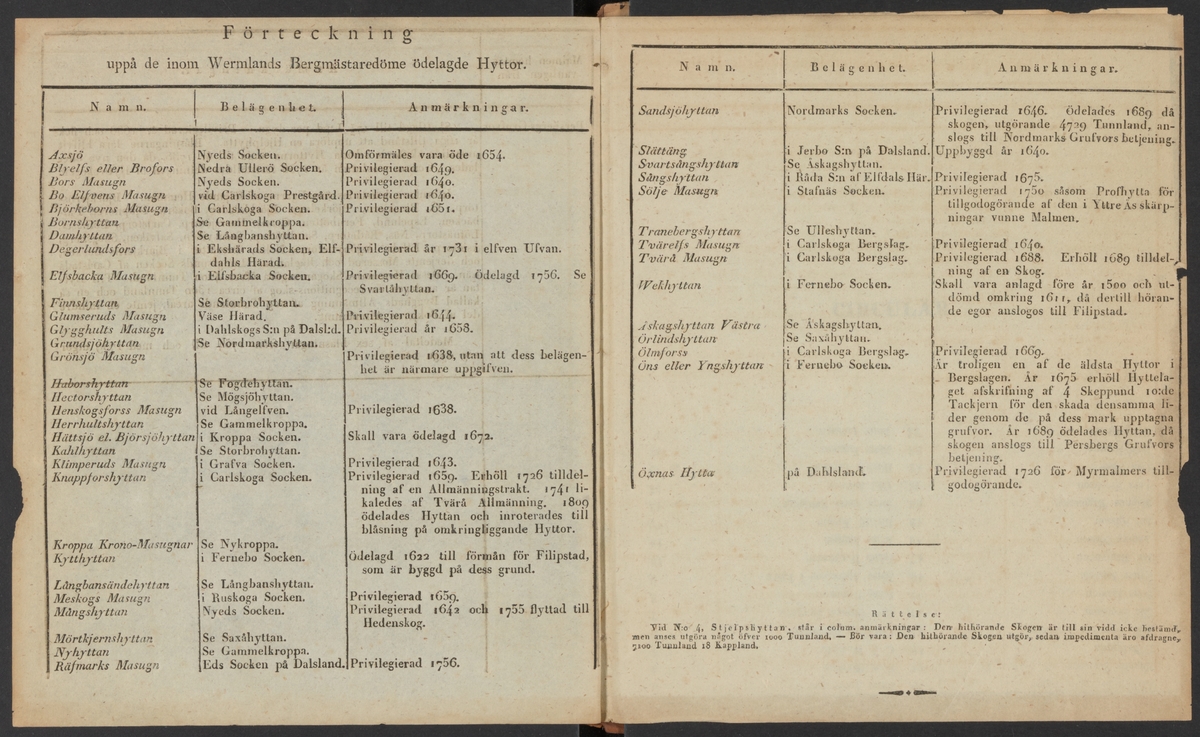 Förteckning
uppå de inom Wermlands Bergmästaredöme ödelagde Hyttor.
Namn. Belägenhet. Anmärkningar.
Axsjö Nyeds Socken. Omförmäles vara öde 1654.
Blyelfs eller Brofors Nedra Ullerö Socken. Privilegierad 1649.
Bors Masugn Nyeds Socken. Privilegierad 1640.
Bo Elfvens Masugn vid Carlskoga Prestgård. Privilegierad 1640.
Björkeborns Masugn i Carlskoga Socken. Privilegierad 1651.
Bornshyttan Se Gammelkroppa.
Damhyttan Se Långbanshyttan.
Degerlundsfors i Ekshärads Socken, Elf- Privilegierad år 1731 i elfven Ufvan.
dahls Härad.
Elfsbacka Masugn i Elfsbacka Socken. Privilegierad 1669. Ödelagd 1756. Se
Svartåhyttan.
Finnshyttan Se Storbrohyttan.
Glumseruds Masugn Väse Härad. Privilegierad 1644.
Glygghults Masugn i Dahlskogs S:n på Dalsl:d. Privilegierad år 1658.
Grundsjöhyttan Se Nordmarkshyttan.
Grönsjö Masugn Privilegierad 1638, utan att dess belägen-
het är närmare uppgifven.
Haborshyttan Se Fogdehyttan.
Hectorshyttan Se Mögsjöhyttan.
Henskogsforss Masugn vid Långelfven. Privilegierad 1638.
Herrhultshyttan Se Gammelkroppa.
Hättsjö el. Björsjöhyttan i Kroppa Socken. Skall vara ödelagd 1672.
Kahlhyttan Se Storbrohyttan.
Klimperuds Masugn i Grafva Socken. Privilegierad 1643.
Knappforshyttan i Carlskoga Socken. Privilegierad 1659. Erhöll 1726 tilldel-
ning af en Allmänningstrakt. 1741 li-
kaledes af Tvärå Allmänning. 1809
ödelades Hyttan och inroterades till
blåsning på omkringliggande Hyttor.
Kroppa Krono-Masugnar Se Nykroppa.
Kytthyttan i Fernebo Socken. Ödelagd 1622 till förmån för Filipstad,
som är byggd på dess grund.
Långbansändehyttan Se Långbanshyttan.
Meskogs Masugn i Ruskoga Socken. Privilegierad 1659.
Mångshyttan Nyeds Socken. Privilegierad 1642 och 1755 flyttad till
Hedenskog.
Mörtkjernshyttan Se Saxåhyttan.
Nyhyttan Se Gammelkroppa.
Räfmarks Masugn Eds Socken på Dalsland. Privilegierad 1756.
Namn. Belägenhet. Anmärkningar.
Sandsjöhyttan Nordmarks Socken. Privilegierad 1646. Ödelades 1689 då
skogen, utgörande 4729 Tunnland, an-
slogs till Nordmarks Grufvors betjening.
Slättäng i Jerbo S:n på Dalsland. Uppbyggd år 1640.
Svartsångshyttan Se Åskagshyttan.
Sångshyttan i Råda S:n af Elfdals Här. Privilegierad 1675.
Sölje Masugn i Stafnäs Socken. Privilegierad 1750 såsom Profhytta för
tillgodogörande af den i Yttre Ås skärp-
ningar vunne Malmen.
Tranebergshyttan Se Ulleshyttan.
Tvärelfs Masugn i Carlskoga Bergslag. Privilegierad 1640.
Tvärå Masugn i Carlskoga Bergslag. Privilegierad 1688. Erhöll 1689 tilldel-
ning af en Skog.
Wekhyttan i Fernebo Socken. Skall vara anlagd före år 1500 och ut-
dömd omkring 1611, då dertill höran-
de egor anslogos till Filipstad.
Åskagshyttan Västra Se Åskagshyttan.
Örlindshyttan Se Saxåhyttan.
Ölmforss i Carlskoga Bergslag. Privilegierad 1669.
Öns eller Yngshyttan i Fernebo Socken. Är troligen en af de äldsta Hyttor i
Bergslagen. År 1675 erhöll Hyttela-
get afskrifning af 4 Skeppund 10:de
Tackjern för den skada densamma li-
der genom de på dess mark upptagna
grufvor. År 1689 ödelades Hyttan, då
skogen anslogs till Persbergs Grufvors
betjening.
Öxnas Hytta på Dahlsland. Privilegierad 1726 för Myrmalmers till-
godogörande.
Rättelse:
Vid N:o 4, Stjelpshyttan, står i colum. anmärkningar: Den hithörande Skogen är till sin vidd icke bestämd,
men anses utgöra något öfver 1000 Tunnland. — Bör vara: Den hithörande Skogen utgör, sedan impedimenta äro afdragne,
7100 Tunnland 18 Kappland.